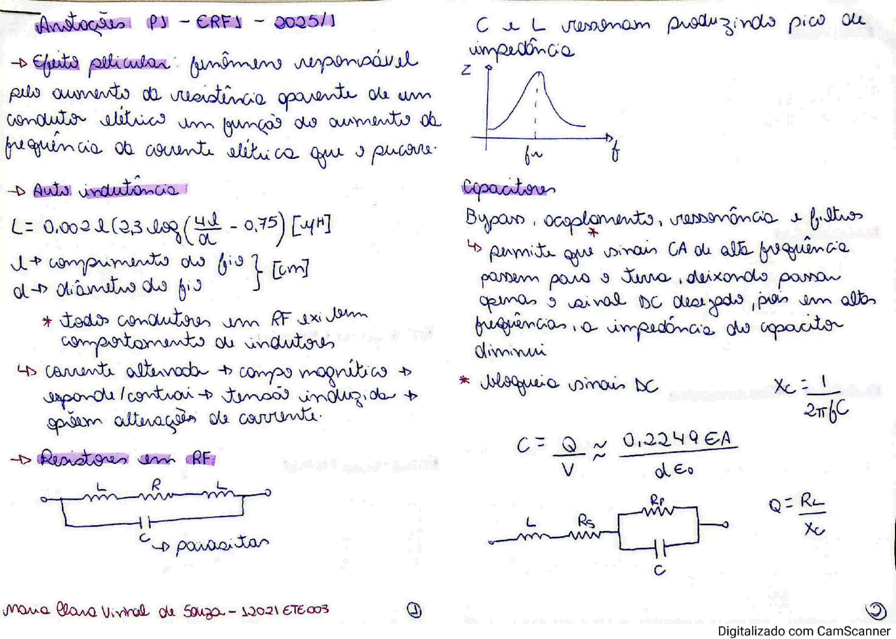 Anotações P1 - ERF1 - 2025/1
→ Efeito pelicular: fenômeno responsável
pelo aumento da resistência aparente de um
condutor elétrico em função do aumento da
frequência da corrente elétrica que o percorre.
→ Auto indutância
L = 0,002 l (2,3 log (4l/d - 0,75) [μH]
l → comprimento do fio } [cm]
d → diâmetro do fio
* todos condutores em RF exibem
comportamento de indutores
↳ corrente alternada → campo magnético →
expande/contrai → tensão induzida →
opõem alterações de corrente.
→ Resistores em RF
L R L
C → parasitas
Maria Clara Vivival de Souza - 12021ETE003
1
C e L ressonam produzindo pico de
impedância
Z
fr f
Capacitores
Bypass, acoplamento, ressonância e filtros
*
↳ permite que sinais CA de alta frequência
passem para o terra, deixando passar
apenas o sinal DC desejado, pois em altas
frequências, a impedância do capacitor
diminui
* bloqueia sinais DC Xc = 1/2πfC
C = Q/V ≈ 0,2249 EA/d E₀
L Rs Rp C
Q = RL/Xc
2
Digitalizado com CamScanner